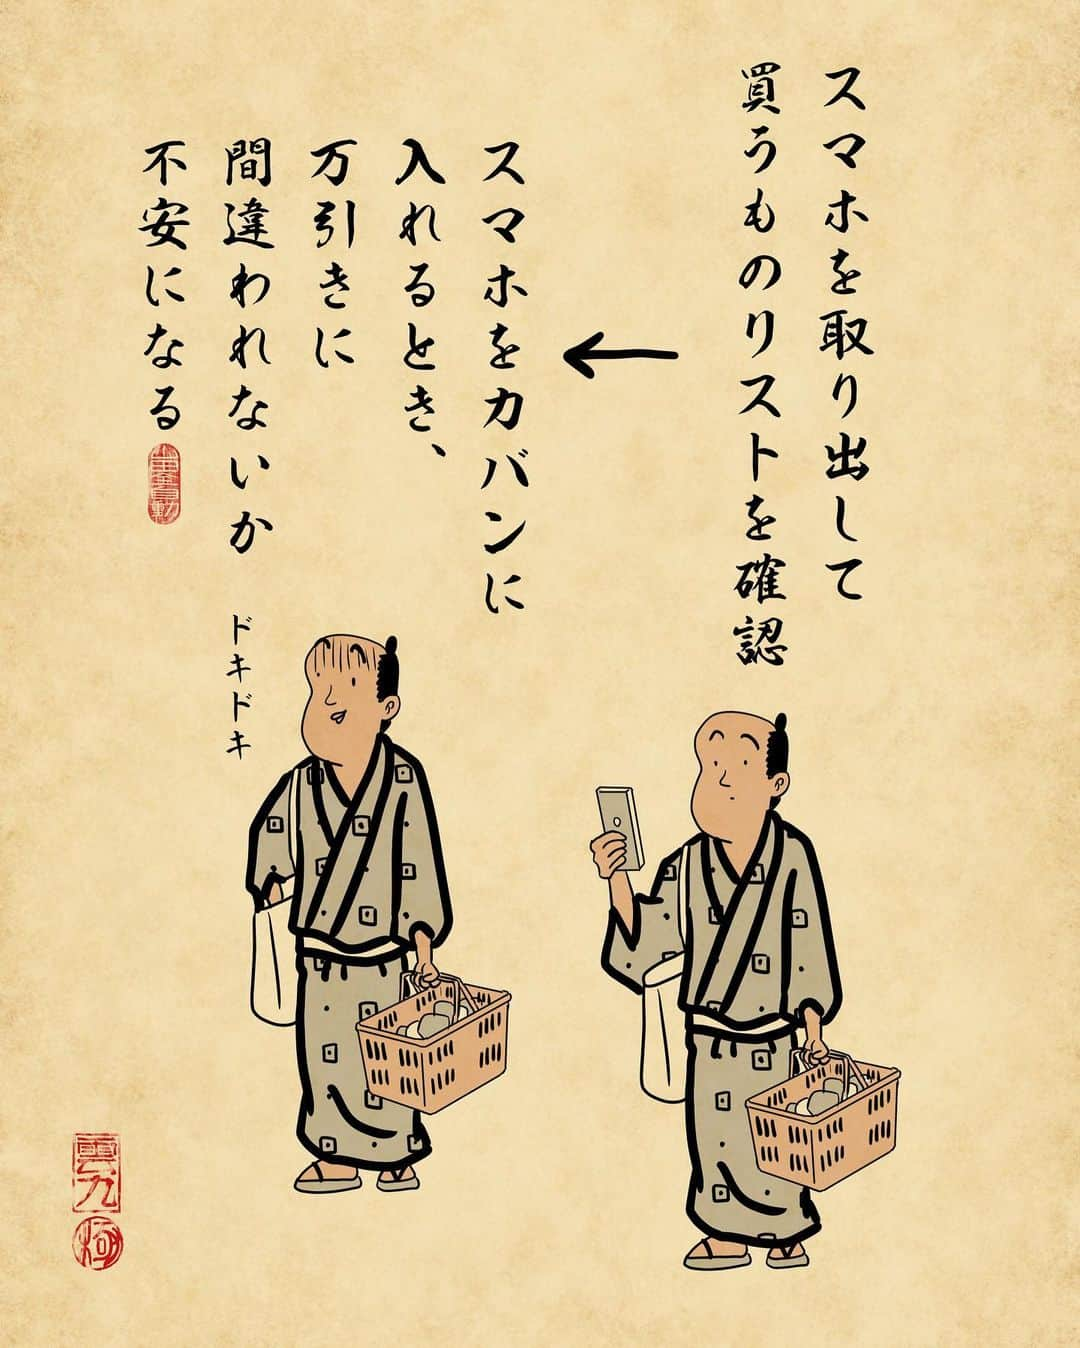 スマホを取り出して
買うものリストを確認
スマホをカバンに
入れるとき、
万引きに
間違われないか
不安になる
ドキドキ